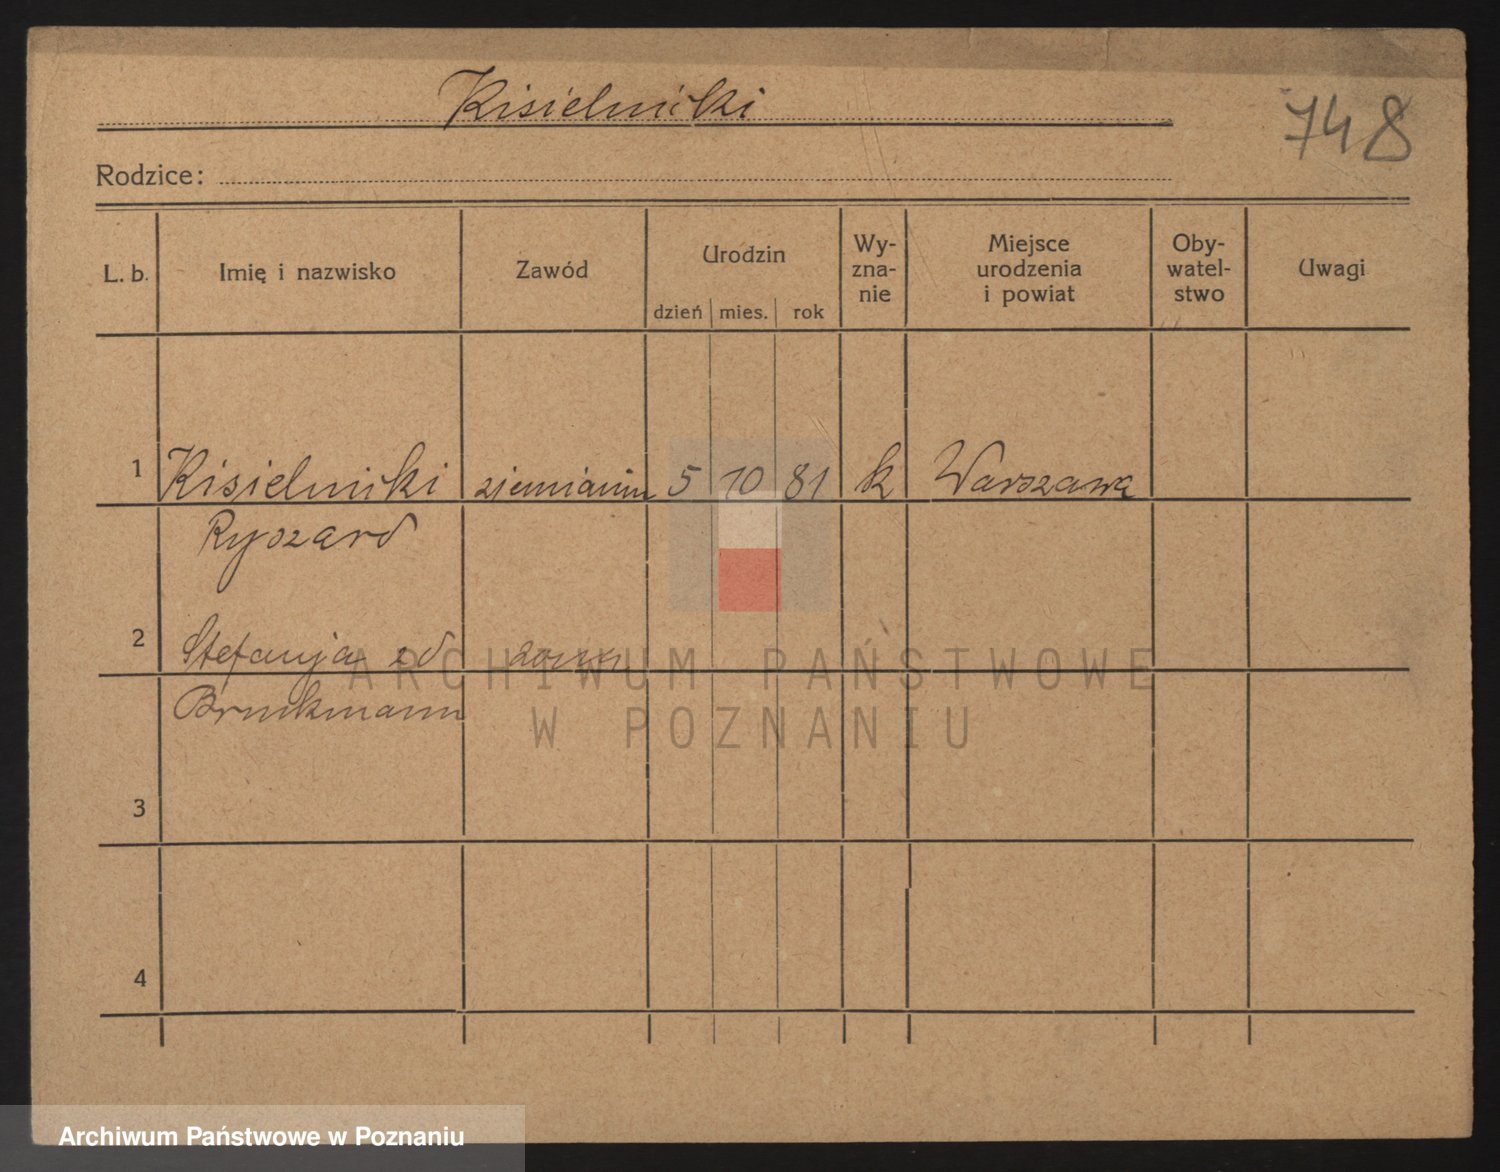 Kisielnicki
748
Rodzice:
L. b. Imię i nazwisko Zawód Urodzin Wy- Miejsce Oby- Uwagi
zna- urodzenia watel-
nie i powiat stwo
dzień mies. rok
1 Kisielnicki ziemianin 5 10 81 k Warszawa
Ryszard
2 Stefanja zd
ARCHIWUM PAŃSTWOWE
Brukmann
W POZNANIU
3
4
Archiwum Państwowe w Poznaniu